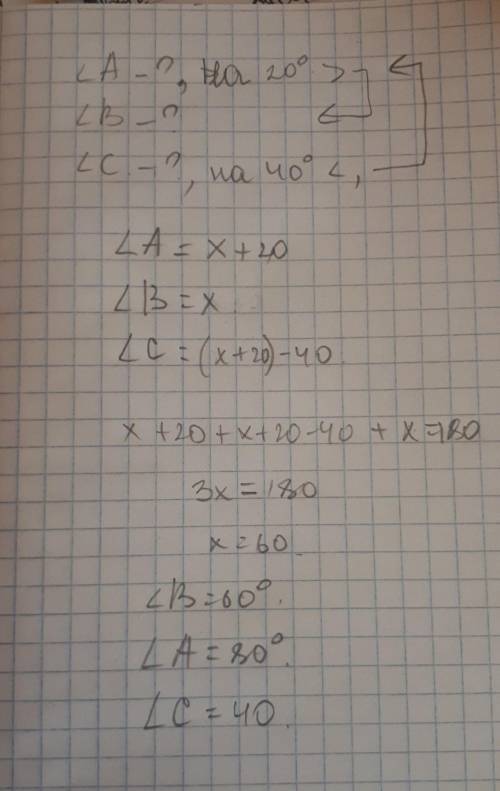 ∠A - ?, на 20° >
∠B - ?
∠C - ?, на 40° <,
∠A = x + 20
∠B = x
∠C = (x+20) - 40
x + 20 + x + 20 - 40 + x = 180
3x = 180
x = 60
∠B = 60°.
∠A = 80°.
∠C = 40.